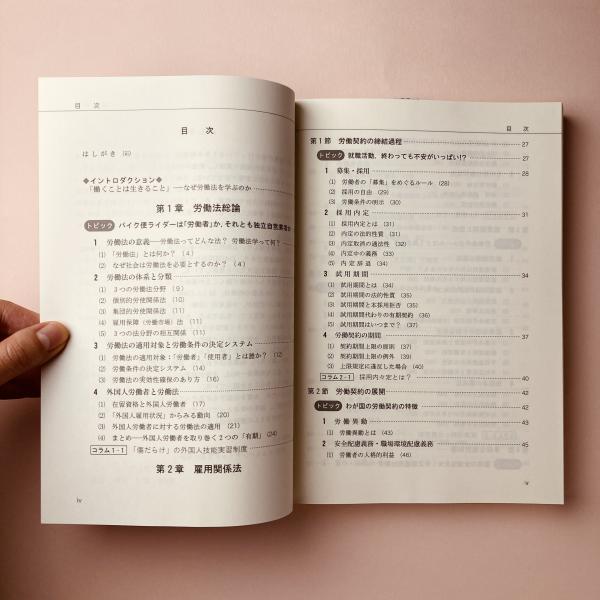 目 次
目 次
はしがき (iii)
◆イントロダクション◆
「働くことは生きること」──なぜ労働法を学ぶのか
第1章 労働法総論
トピック バイク便ライダーは「労働者」か、それとも独立自営業者か
1 労働法の意義──労働法ってどんな法? 労働法学って何?
(1) 「労働法」とは何か? (4)
(2) なぜ社会は労働法を必要とするのか? (4)
2 労働法の体系と分類
(1) 3つの労働法分野 (9)
(2) 個別的労使関係法 (10)
(3) 集団的労使関係法 (10)
(4) 雇用保障(労働市場)法 (11)
(5) 3つの法分野の相互関係 (11)
3 労働法の適用対象と労働条件の決定システム
(1) 労働法の適用対象:「労働者」「使用者」とは誰か? (12)
(2) 労働条件の決定システム (14)
(3) 労働法の実効性確保のあり方 (16)
4 外国人労働者と労働法
(1) 在留資格と外国人労働者 (17)
(2) 「外国人雇用状況」からみる動向 (20)
(3) 外国人労働者に対する労働法の適用 (21)
(4) まとめ──外国人労働者を取り巻く2つの「有期」 (24)
コラム1-1 「傷だらけ」の外国人技能実習制度
第2章 雇用関係法
iv
目 次
第1節 労働契約の締結過程 27
トピック 就職活動、終わっても不安がいっぱい!? 27
1 募集・採用 28
(1) 労働者の「募集」をめぐるルール (28)
(2) 採用の自由 (29)
(3) 労働条件の明示 (30)
2 採用内定 31
(1) 採用内定とは (31)
(2) 内定の法的性質 (31)
(3) 内定取消の適法性 (32)
(4) 内定中の義務 (33)
(5) 内定辞退 (34)
3 試用期間 34
(1) 試用期間とは (34)
(2) 試用期間の法的性質 (35)
(3) 試用期間と本採用拒否 (35)
(4) 試用期間代わりの有期契約 (36)
(5) 試用期間はいつまで? (37)
4 労働契約の期間 37
(1) 契約期間上限の原則 (37)
(2) 契約期間上限の例外 (39)
(3) 上限規定に違反した場合 (40)
コラム2-1 採用内々定とは? 40
第2節 労働契約の展開 42
トピック わが国の労働契約の特徴 42
1 労働異動 42
(1) 労働異動とは (43)
2 安全配慮義務・職場環境配慮義務 45
(1) 労働者の人格的利益 (46)
v